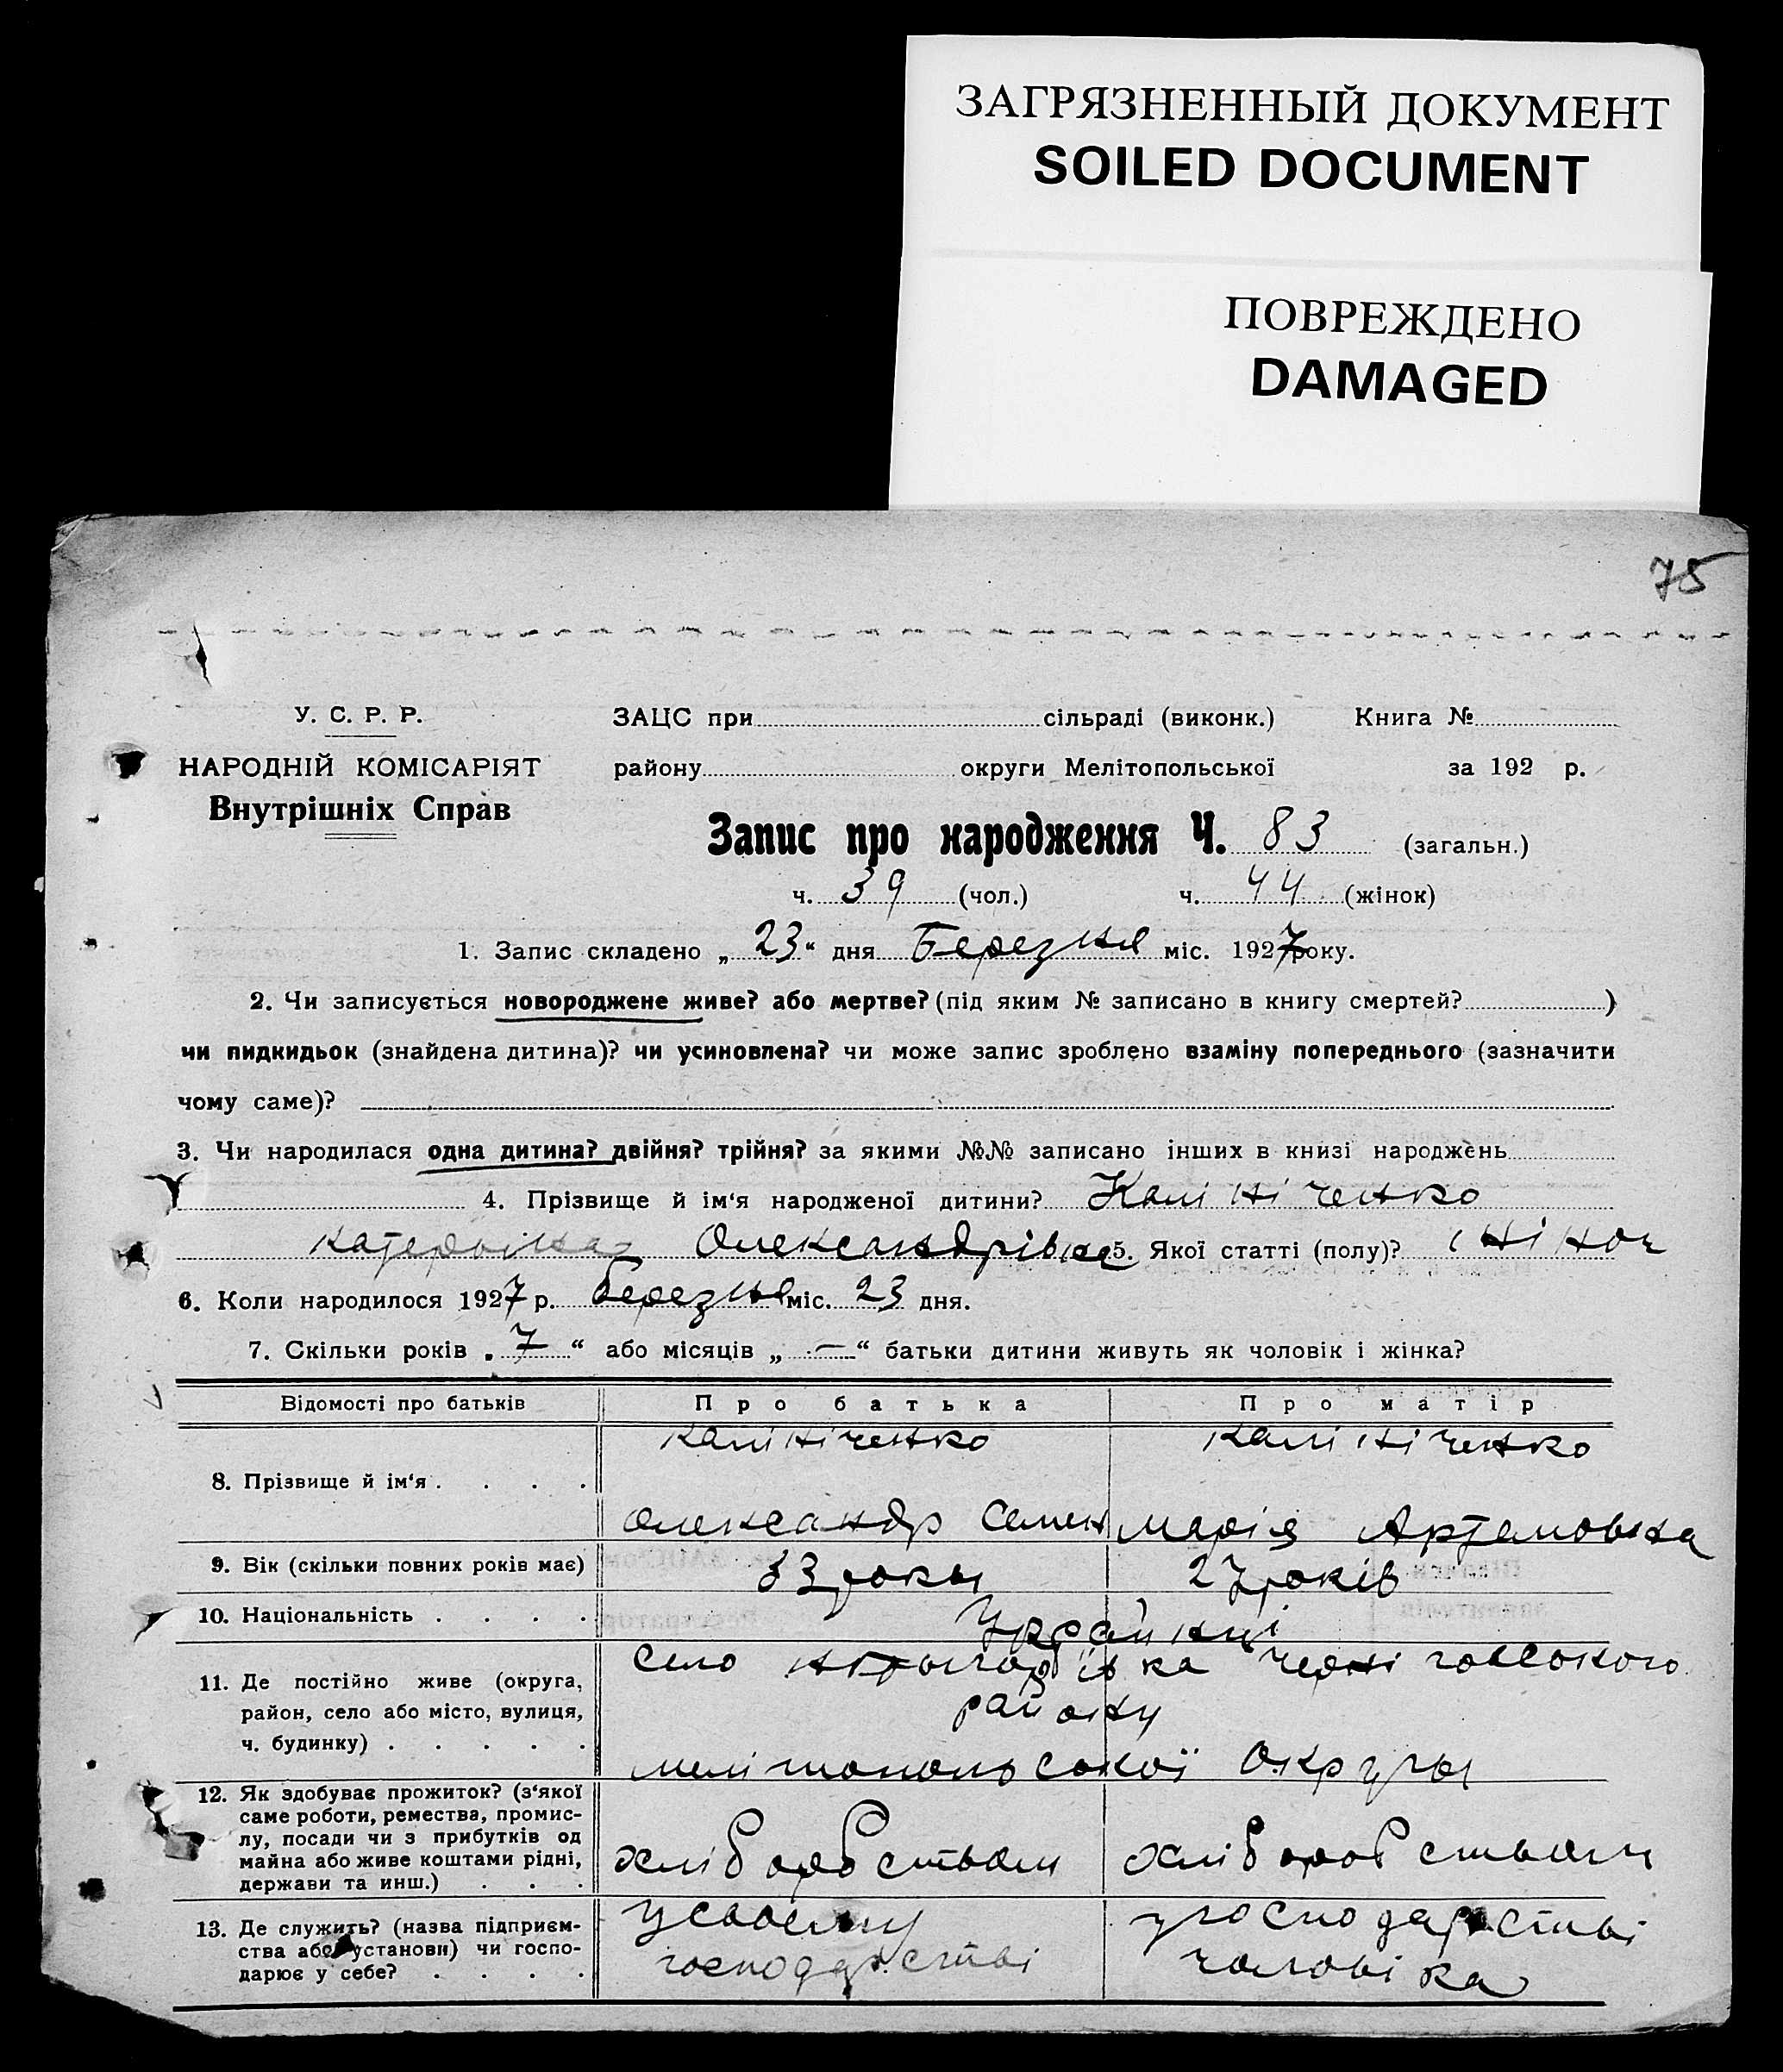 ЗАГРЯЗНЕННЫЙ ДОКУМЕНТ
SOILED DOCUMENT
ПОВРЕЖДЕНО
DAMAGED
75
У. С. Р. Р.
НАРОДНІЙ КОМІСАРІЯТ
Внутрішніх Справ
ЗАЦС при сільраді (виконк.) Книга №
району округи Мелітопольської за 192 р.
Запис про народження Ч. 83 (загальн.)
ч. 39 (чол.) ч. 44 (жінок)
1. Запис складено „23“ дня Березня міс. 1927 року.
2. Чи записується новороджене живе? або мертве? (під яким № записано в книгу смертей? )
чи пидкидьок (знайдена дитина)? чи усиновлена? чи може запис зроблено взаміну попереднього (зазначити
чому саме)?
3. Чи народилася одна дитина? двійня? трійня? за якими №№ записано інших в книзі народжень
4. Прізвище й ім‘я народженої дитини? Калініченко
Катерина Олександрівна 5. Якої статті (полу)? жіноч
6. Коли народилося 1927 р. Березня міс. 23 дня.
7. Скільки років „7“ або місяців „—“ батьки дитини живуть як чоловік і жінка?
Відомості про батьків Про батька Про матір
Калініченко Калініченко
8. Прізвище й ім‘я . . . .
Олександр Семен Марія Артемовна
9. Вік (скільки повних років має) 33 рокы 27 років
10. Національність . . . . Українці
11. Де постійно живе (округа, район, село або місто, вулиця, ч. будинку) . . . . .
село района
Мелітопольської Округы
12. Як здобуває прожиток? (з‘якої саме роботи, ремества, промислу, посади чи з прибутків од майна або живе коштами рідні, держави та инш.) . . .
хліборобством хліборобством
13. Де служить? (назва підприємства або установи) чи господарює у себе? . . . .
у своему у господарстві
господарстві чоловіка